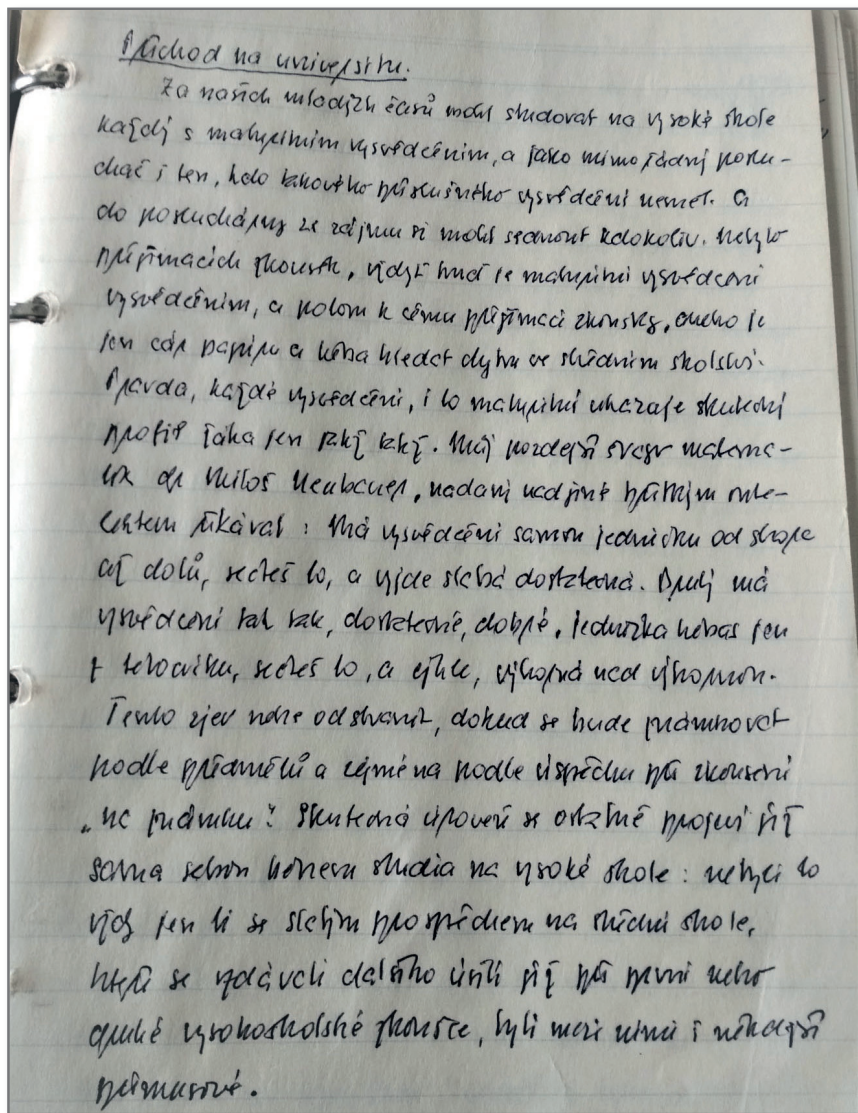 Příchod na universitu.
Za našich mladých časů mohl studovat na vysoké škole
každý s maturitním vysvědčením, a jako mimořádný poslu-
chač i ten, kdo takového příslušného vysvědčení neměl. A
do posluchárny ze zájmu si mohl sednout kdokoliv. Nebylo
přijímacích zkoušek, vždyť buď je maturitní vysvědčení
vysvědčením, a potom k čemu přijímací zkoušky, anebo je
jen cár papíru a třeba hledat chybu ve středním školství.
Pravda, každé vysvědčení, i to maturitní ukazuje skutečný
profil žáka jen tak tak. Můj pozdější švagr matema-
tik dr Miloš Neubauer, nadaný nadmíru břitkým inte-
lektem říkával: Má vysvědčení samou jedničku od shora
až dolů, sečteš to, a vyjde slabá dostatečná. Druhý má
vysvědčení tak tak, dostatečné, dobré, jednička třebas jen
z tělocviku, sečteš to, a ejhle, výborná nad výbornou.
Tento zjev nelze odstranit, dokud se bude známkovat
podle předmětů a zejména podle úspěchu při zkoušení
„na známku". Skutečná úroveň se ostatně projeví již
sama sebou během studia na vysoké škole: nebyli to
vždy jen ti se slabým prospěchem na střední škole,
kteří se vzdávali dalšího úsilí již při první nebo
druhé vysokoškolské zkoušce, byli mezi nimi i někdejší
primusové.